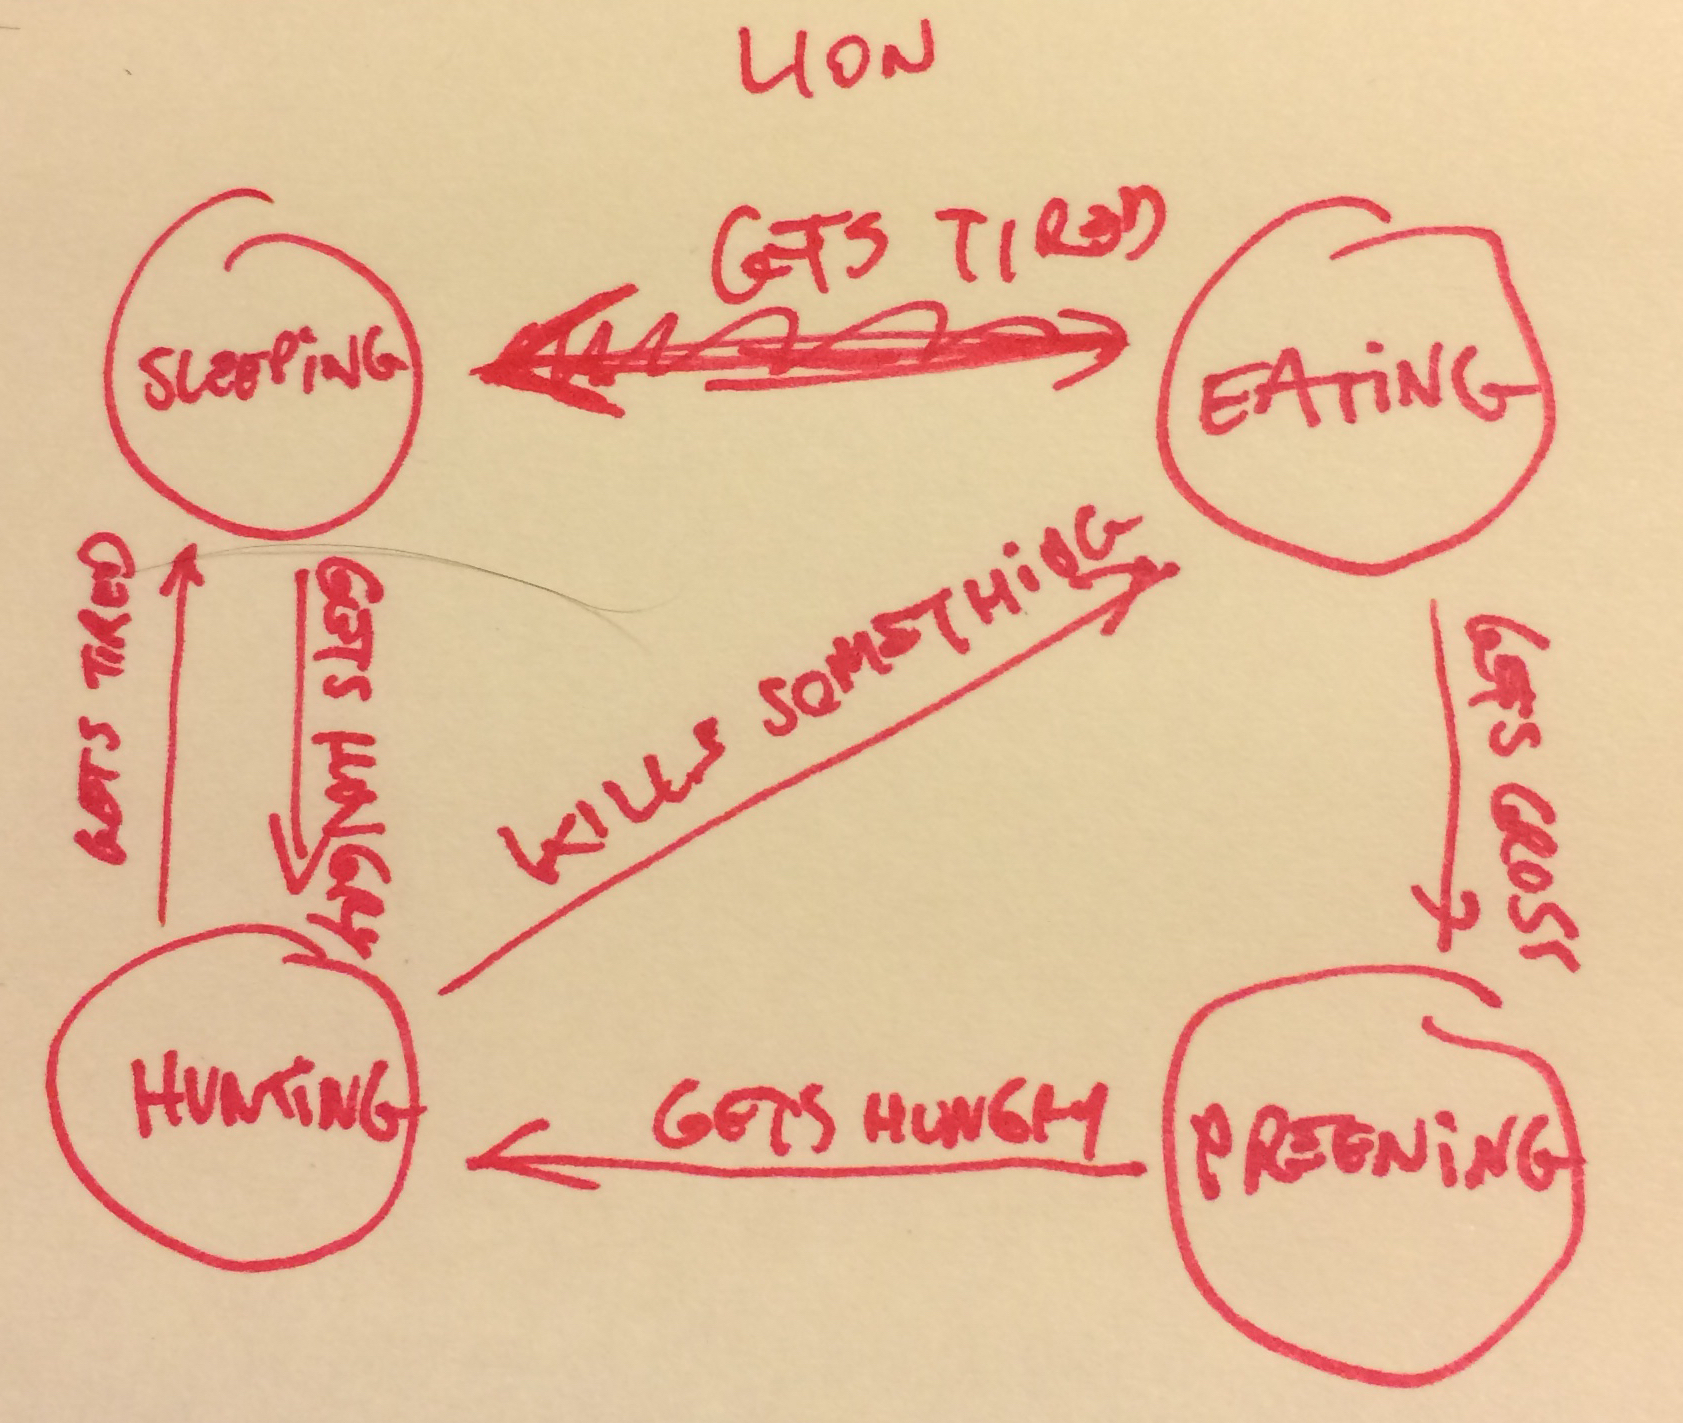 LION
GETS TIRED
SLEEPING
EATING
GETS TIRED
GETS HUNGRY
KILLS SOMETHING
GETS GROSS
HUNTING
GETS HUNGRY
PREENING